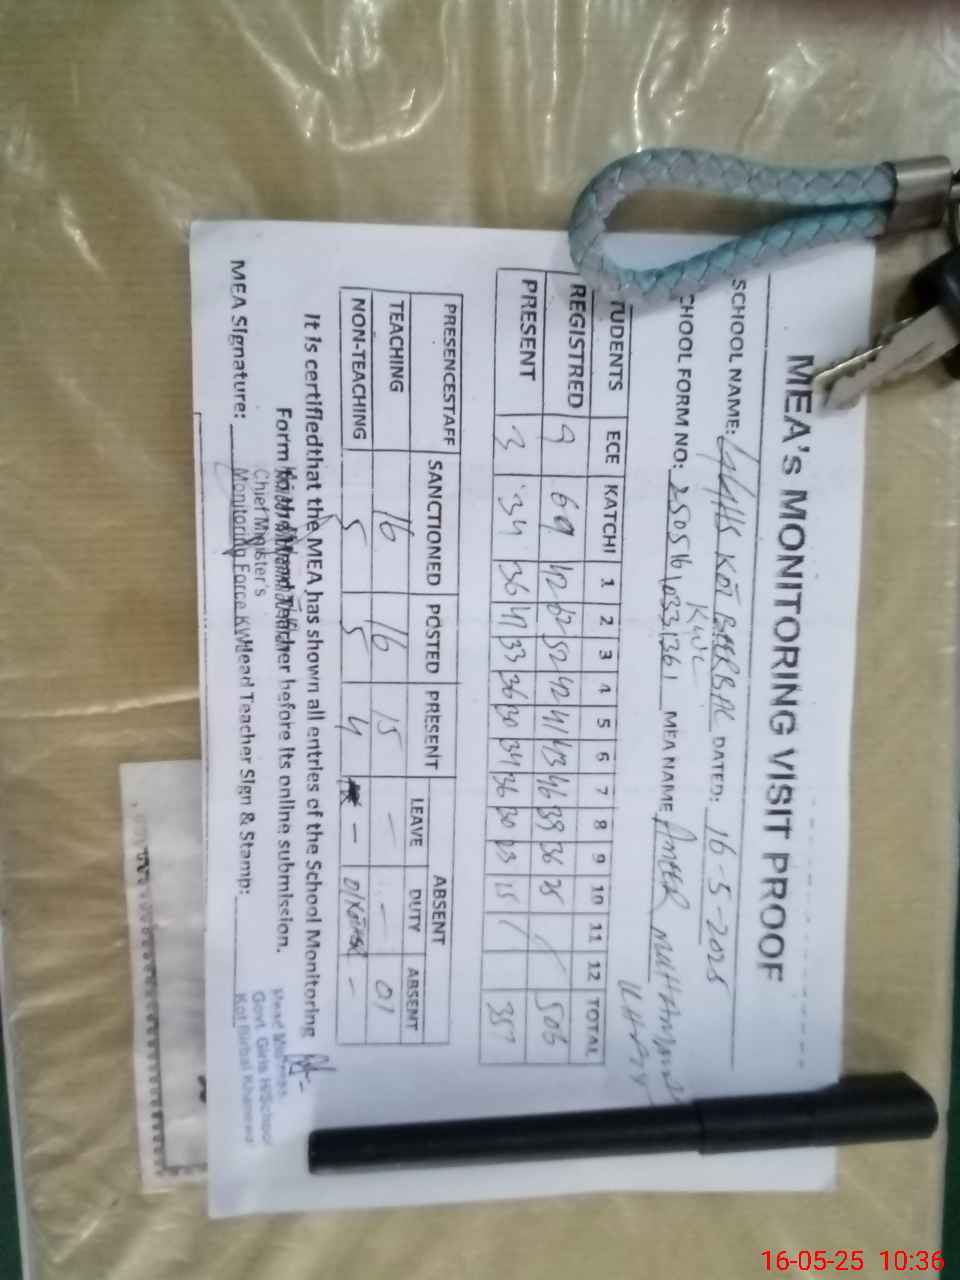 MEA's MONITORING VISIT PROOF
SCHOOL NAME: GGHS KOT BEERBAL DATED: 16-5-2025
KWL
CHOOL FORM NO: 250516 033136 1 MEA NAME AMEER MUHAMMAD
TUDENTS ECE KATCHI 1 2 3 4 5 6 7 8 9 10 11 12 TOTAL
REGISTRED 9 69 42 62 52 42 41 43 46 39 36 25 / 506
PRESENT 3 34 36 41 33 36 30 34 36 30 23 15 / 351
PRESENCESTAFF SANCTIONED POSTED PRESENT ABSENT
LEAVE DUTY ABSENT
TEACHING 16 16 15 — — 01
NON-TEACHING 5 5 4 — 01 —
It is certifiedthat the MEA has shown all entries of the School Monitoring
Form to the Head Teacher before its online submission.
Chief Minister's
Monitoring Force KWL
MEA Signature: Head Teacher Sign & Stamp:
Head Mistress
Govt. Girls H/School
Kot Birbal Khanewal
16-05-25 10:36